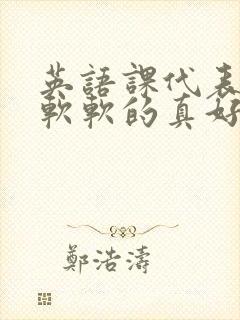 英語課代表
軟軟的真好
鄭浩濤